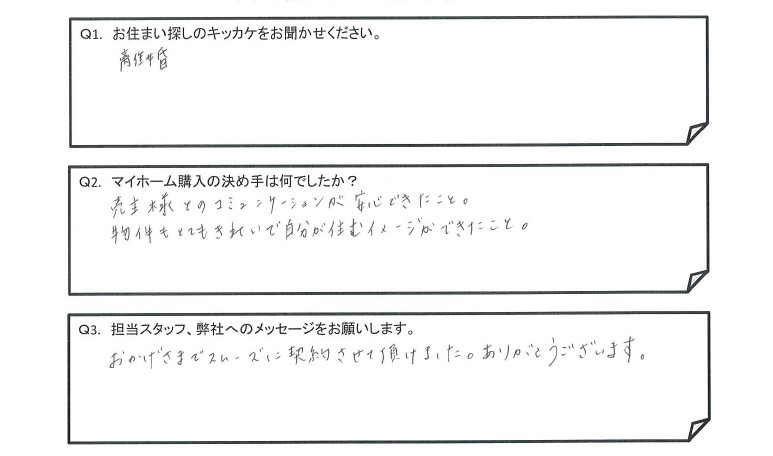 Q1. お住まい探しのキッカケをお聞かせください。
離婚
Q2. マイホーム購入の決め手は何でしたか?
売主様とのコミュニケーションが安心できたこと。
物件もとてもきれいで自分が住むイメージができたこと。
Q3. 担当スタッフ、弊社へのメッセージをお願いします。
おかげさまでスムーズに契約させて頂けました。ありがとうございます。